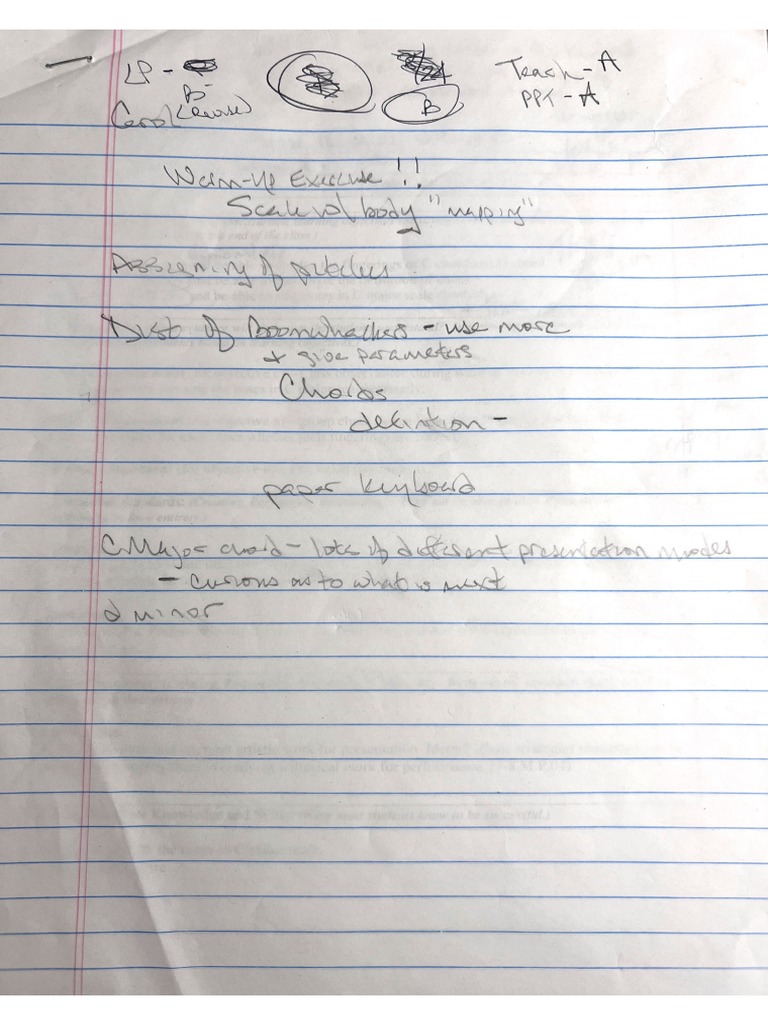 LP -
B-
(revise)
Carol
/24
B
Teach - A
PPT - A
Warm-up Exercise !!
Scale w/ body "mapping"
Assigning of pitches
Dist of Boomwhackers - use more
+ give parameters
Chords
definition -
paper keyboard
C Major chord - lots of different presentation modes
- curious as to what is next
d minor